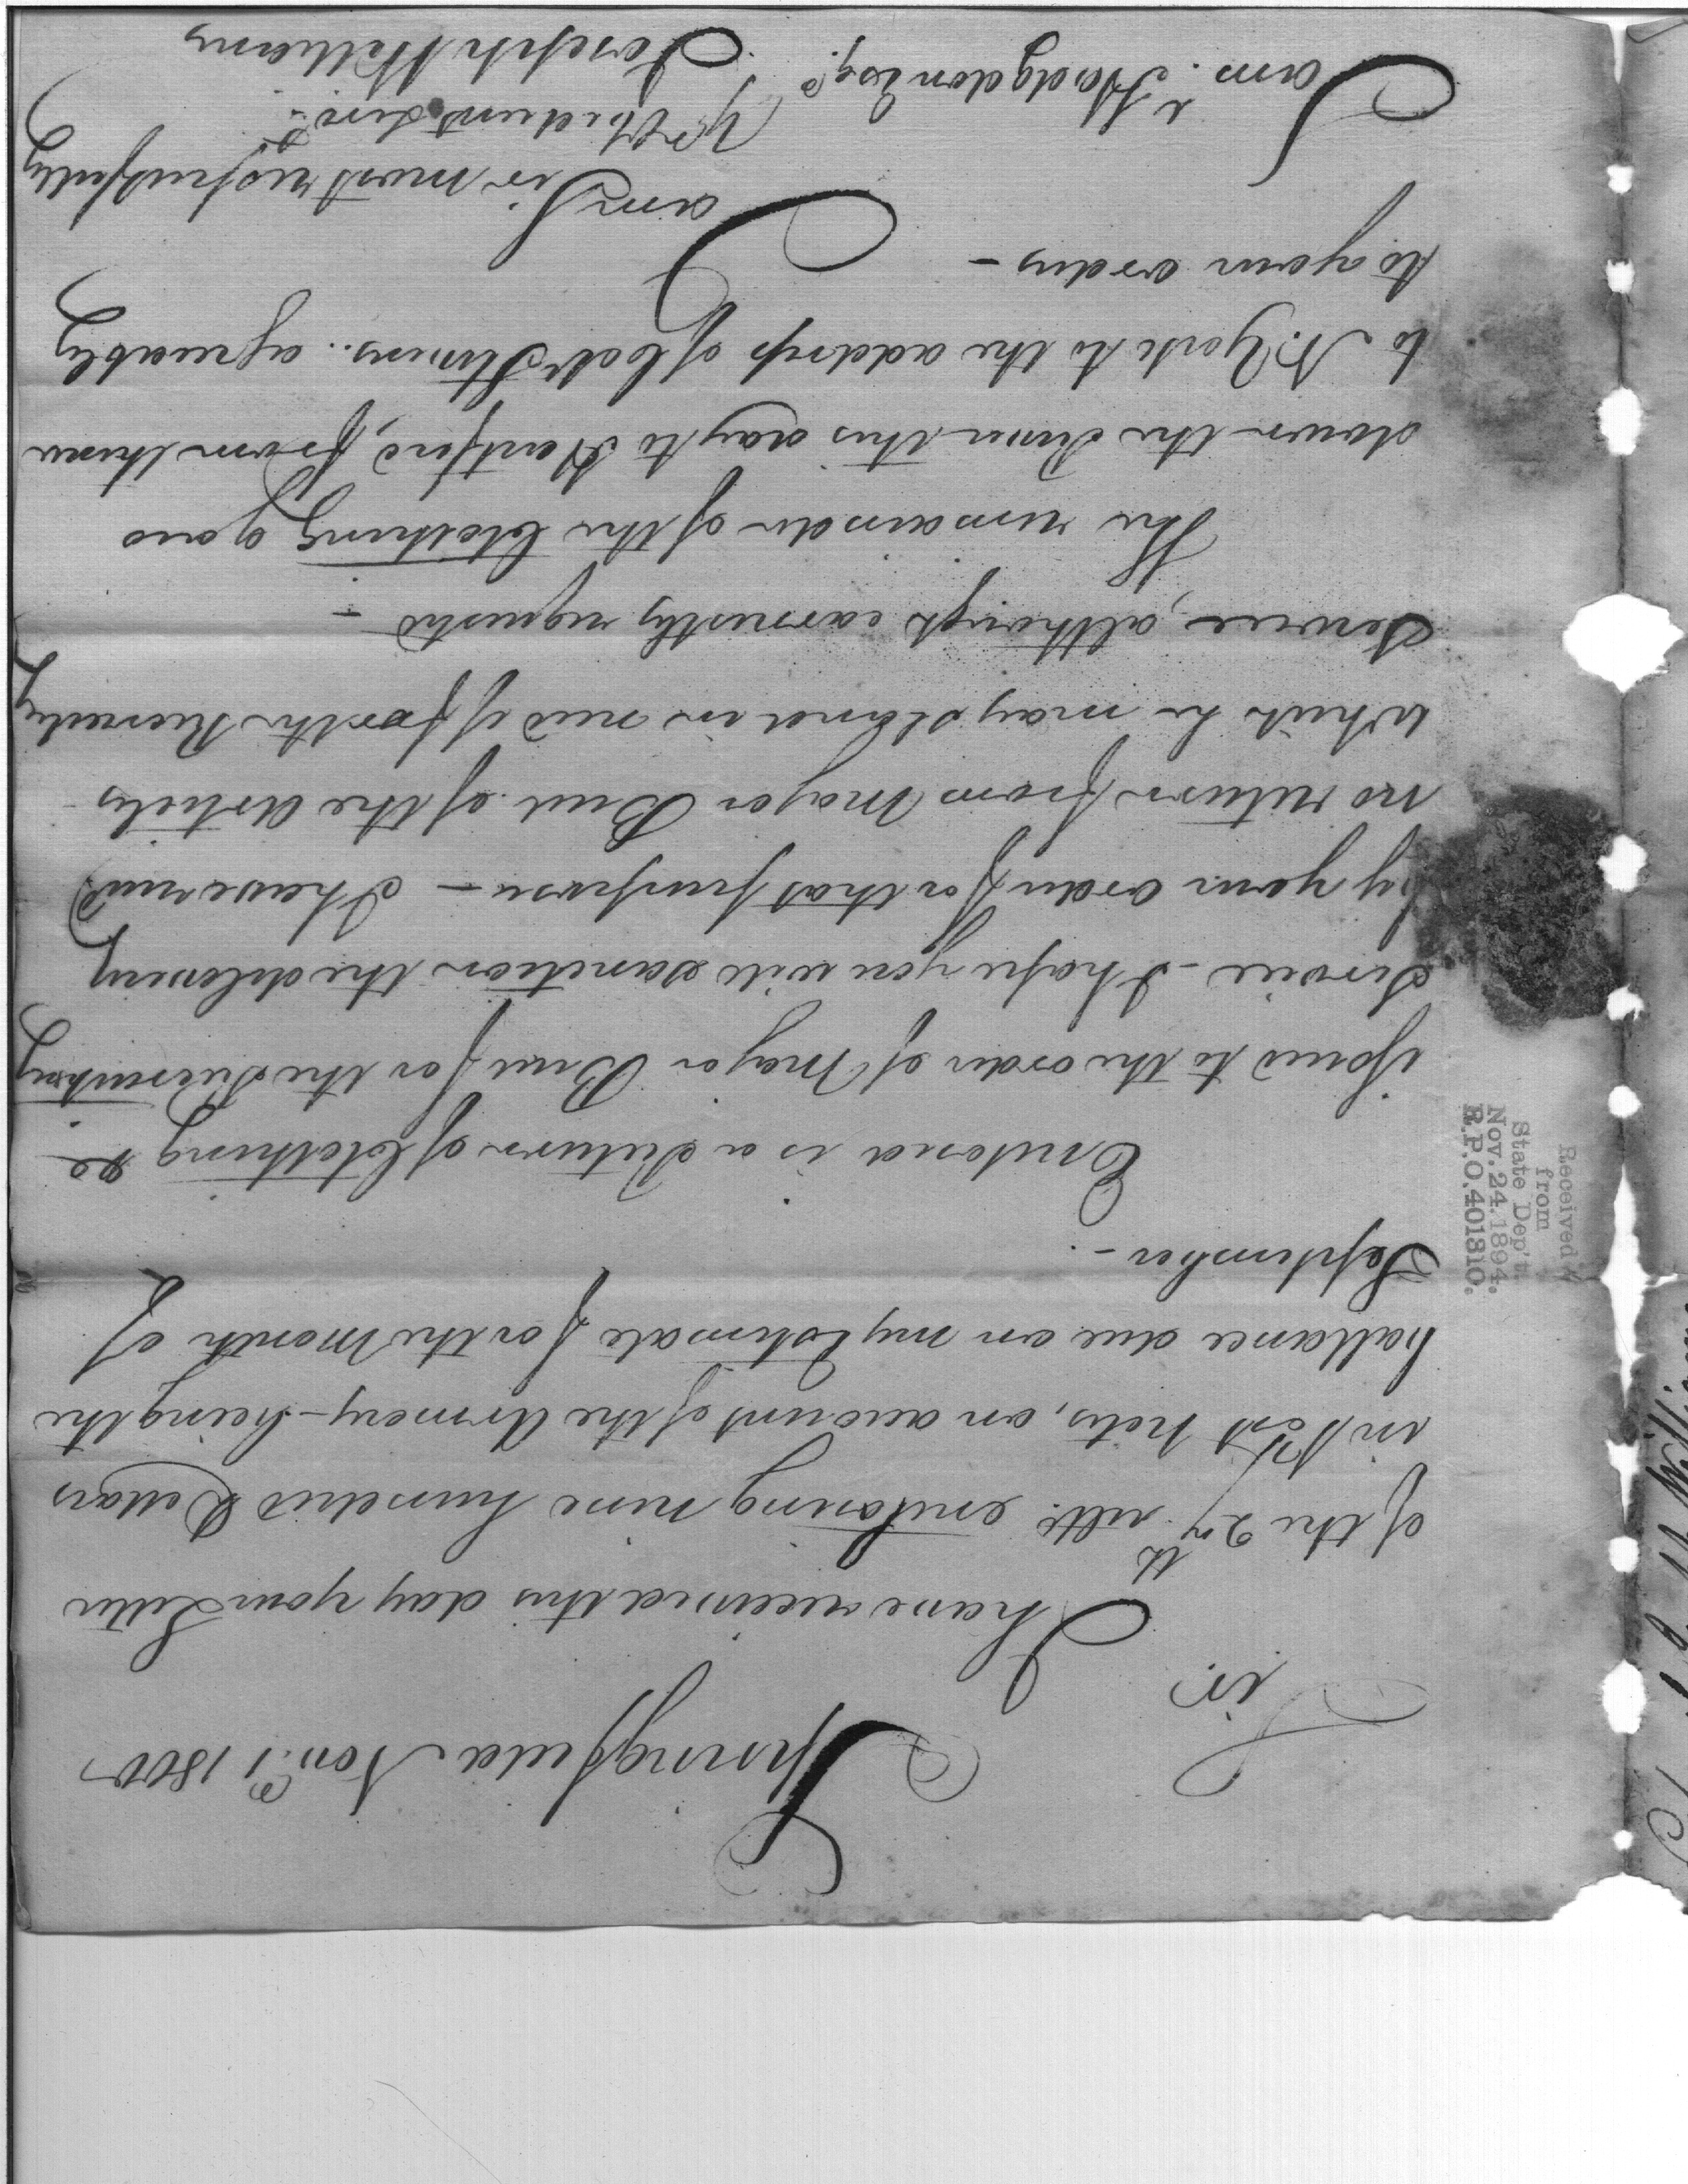 Springfield Nov.r 1 1800
Sir.
I have received this day your Letter
of the 27th ulto. enclosing nine hundred Dollars
in Post notes, on account of the Armory - being the
ballance due on my Estimate for the Month of
September -
Enclosed is a Return of Clothing &c
issued to the order of Major Buel for the Recruiting
Service - I hope you will sanction the delivery
by your order for that purpose - I have rec'd
no return from Major Buel of the Articles
which he may stand in need of for the Recruitg
Service, although earnestly requested -
The remainder of the Clothing goes
down the River this day to Hartford, from thence
to N. York to the address of Colo. Stevens. agreeably
to your orders -
I am Sir most respectfully
Yr Obedient Servt.
Joseph Williams
Saml. Hodgdon Esqr.
Received
from
State Dep't.
Nov. 24. 1894.
R.P.O. 401810.
Williams